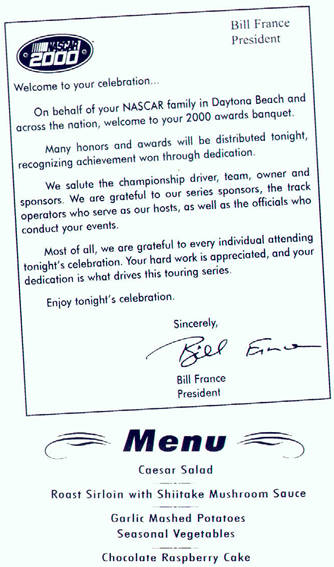 Bill France
President
NASCAR
2000
Welcome to your celebration...
On behalf of your NASCAR family in Daytona Beach and
across the nation, welcome to your 2000 awards banquet.
Many honors and awards will be distributed tonight,
recognizing achievement won through dedication.
We salute the championship driver, team, owner and
sponsors. We are grateful to our series sponsors, the track
operators who serve as our hosts, as well as the officials who
conduct your events.
Most of all, we are grateful to every individual attending
tonight's celebration. Your hard work is appreciated, and your
dedication is what drives this touring series.
Enjoy tonight's celebration.
Sincerely,
Bill France
Bill France
President
Menu
Caesar Salad
Roast Sirloin with Shiitake Mushroom Sauce
Garlic Mashed Potatoes
Seasonal Vegetables
Chocolate Raspberry Cake